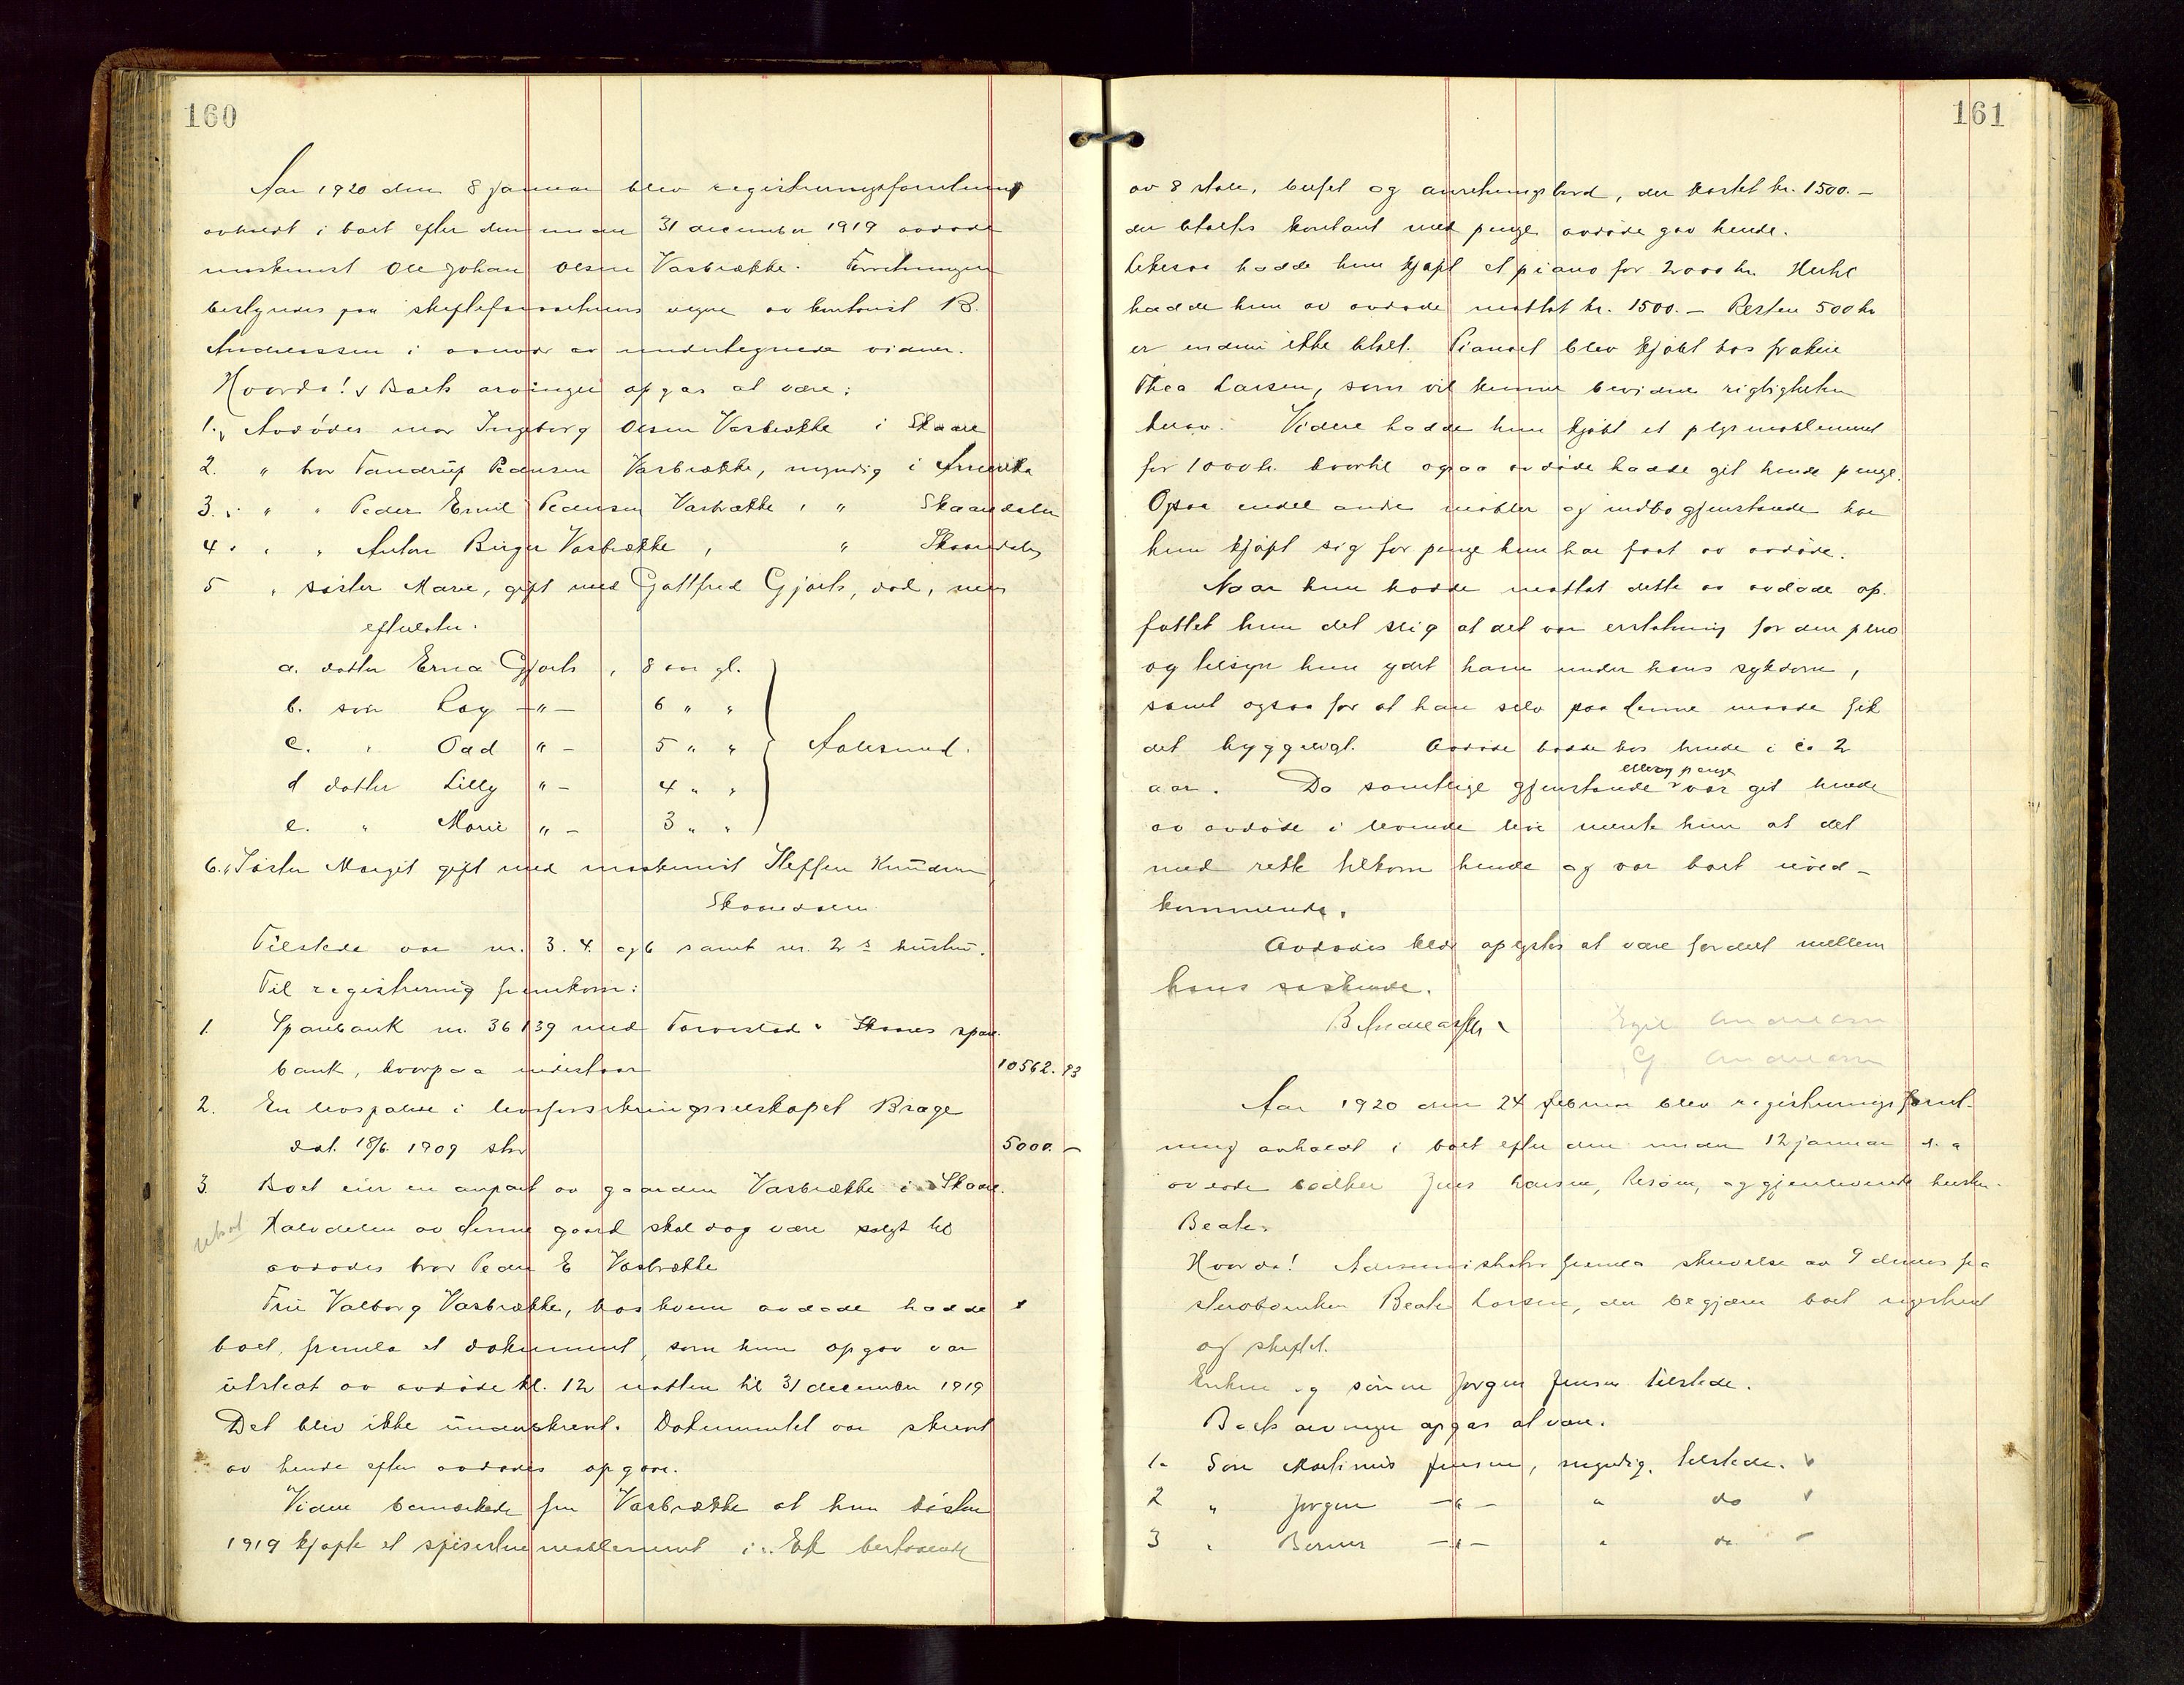 160
Aar 1920 den 8 januar blev registreringsforretning
avholdt i boet efter den under 31 december 1919 avdøde
maskinist Ole Johan Olsen Vasbrække. Forretningen
bestyredes paa skifteforvalterens vegne av kontorist B.
Andreassen i overvær av undertegnede vidner.
Hvorda! Boets arvinger opgas at være:
1. Avdødes mor Ingeborg Olsen Vasbrække i Skaare
2. " bror Tandrup Pedersen Vasbrække, myndig i Amerika
3. " " Peder Emil Pedersen Vasbrække, " Skaaredalen
4. " " Anton Birger Vasbrække, " Skaaredalen
5 " søster Marie, gift med Gottfred Gjærts, død, men
efterlater.
a. datter Erna Gjærts, 8 aar gl.
b. søn Roy -"- 6 " "
c. " Odd "- 5 " " Aalesund.
d datter Lilly "- 4 " "
e. " Marie "- 3 " "
6. " Søster Margit gift med maskinist Steffen Knudsen
Skaaredalen
Tilstede var nr. 3. 4. og 6 samt nr. 2s hustru.
Til registrering fremkom:
1. Sparebank nr. 36139 med Torvestad & Skaares spare-
bank, hvorpaa indestaar 10562.93
2. En livspolise i livsforsikringsselskapet Brage
dat. 18/6 1909 stor 5000.-
3. Boet eier en anpart av gaarden Vasbrække i Skaare.
Halvdelen av denne gaard skal dog være solgt til
avdødes bror Peder E Vasbrække
Fru Valborg Vasbrække, hos hvem avdøde hadde
boet, fremla et dokument, som hun opgav var
utstedt av avdøde kl. 12 natten til 31 december 1919
Det blev ikke underskrevet. Dokumentet var skrevet
av hende efter avdødes opgave.
Videre bemærkede fru Vasbrække at hun høsten
1919 kjøpte et spisestuemøblement i Ek bestaaende
161
av 8 stole, buffet og anretningsbord, der kostet kr. 1500.-
der betaltes kontant med penge avdøde gav hende.
Likesaa hadde hun kjøpt et piano for 2000 kr. Hertil
hadde hun av avdøde mottat kr. 1500.- Resten 500 kr
er endnu ikke betalt. Pianoet blev kjøbt hos frøken
Thea Larsen, som vil kunne bevidne rigtigheten
herav. Videre hadde hun kjøbt et plysmøblement
for 1000 kr. hvortil ogsaa avdøde hadde git hende penge.
Ogsaa endel andre møbler og indbogjenstande har
hun kjøpt sig for penge hun har faat av avdøde.
Naar hun hadde mottat dette av avdøde op-
fattet hun det slig at det var erstatning for den pleie
og tilsyn hun ydet ham under hans sykdom,
samt ogsaa for at han selv paa denne maade fik
det hyggeligt. Avdøde bodde hos hende i ca 2
eller penge
aar. Da samtlige gjenstande var git hende
av avdøde i levende live mente hun at det
med rette tilkom hende og var boet uved-
kommende.
Avdødes klær oplystes at være fordelt mellem
hans søskende.
B Andreassen Egil Andreassen
G Andreassen
Aar 1920 den 24 februar blev registreringsforret-
ning avholdt i boet efter den under 12 januar d. a
avdøde bødker Jens Larsen, Risøen, og gjenlevende hustru
Beate.
Hvorda! Administrator fremla skrivelse av 9 dennes fra
Beate Larsen, der begjærer boet registrert
og skiftet.
Enken og sønnen Jørgen Jensen tilstede.
Boets arvinger opgas at være.
1. Søn Martinus Jensen, myndig, tilstede.
2 " Jørgen -"- " do
3 " Berner -"- " do